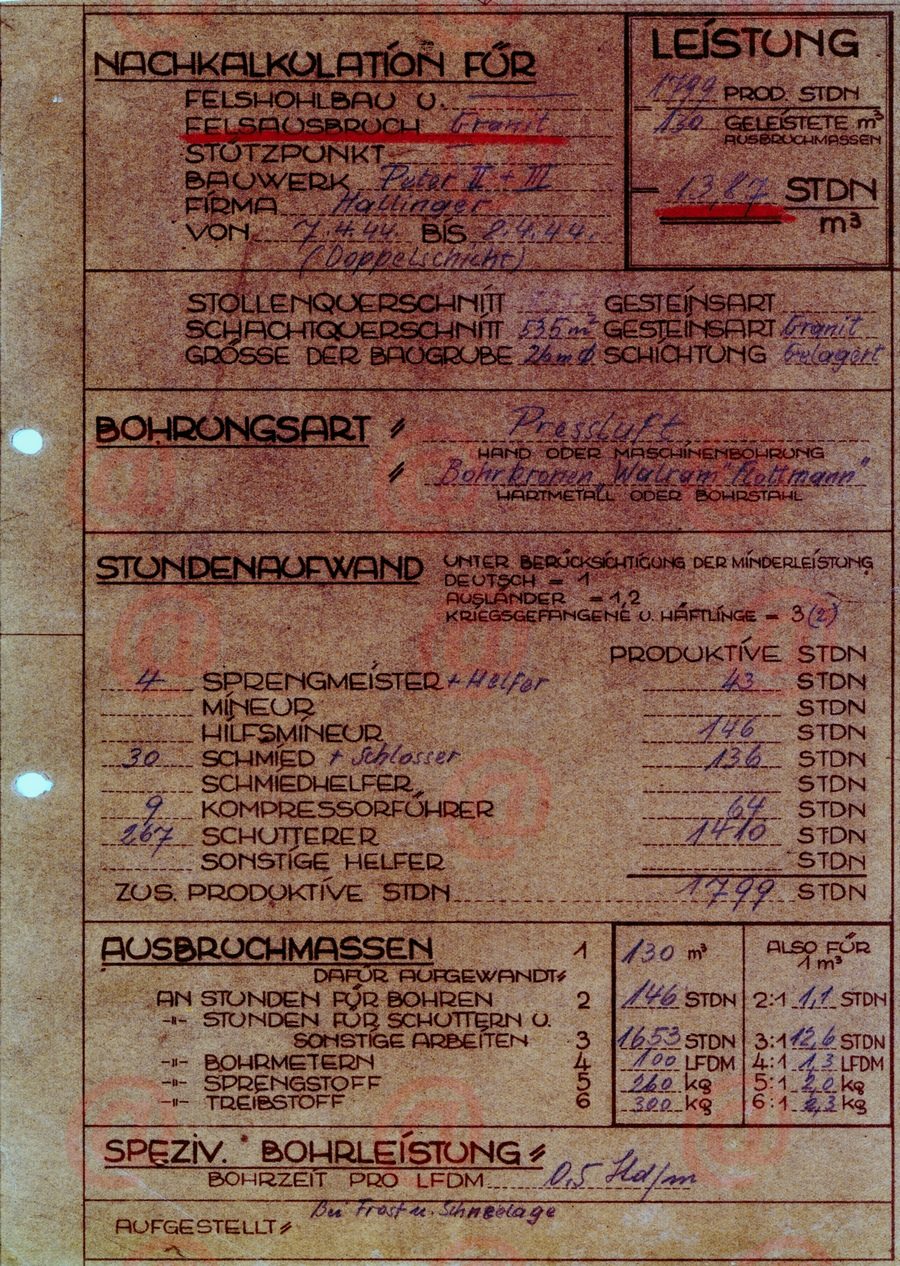 NACHKALKULATION FÜR
FELSHOHLBAU U.
FELSAUSBRUCH Granit
STÜTZPUNKT
BAUWERK Puter II + III
FIRMA Hallinger
VON 7.4.44. BIS 8.4.44.
(Doppelschicht)
LEISTUNG
1799 PROD. STDN
130 GELEISTETE m³
AUSBRUCHMASSEN
13,87 STDN
m³
STOLLENQUERSCHNITT GESTEINSART
SCHACHTQUERSCHNITT 535 m² GESTEINSART Granit
GRÖSSE DER BAUGRUBE 26 m ϕ SCHICHTUNG Gelagert
BOHRUNGSART Pressluft
HAND ODER MASCHINENBOHRUNG
Bohrkronen "Walram" "Flottmann"
HARTMETALL ODER BOHRSTAHL
STUNDENAUFWAND UNTER BERÜCKSICHTIGUNG DER MINDERLEISTUNG
DEUTSCH = 1
AUSLÄNDER = 1,2
KRIEGSGEFANGENE U. HÄFTLINGE = 3 (2)
PRODUKTIVE STDN
4 SPRENGMEISTER + Helfer 43 STDN
MINEUR STDN
HILFSMINEUR 146 STDN
30 SCHMIED + Schlosser 136 STDN
SCHMIEDHELFER STDN
9 KOMPRESSORFÜHRER 64 STDN
267 SCHUTTERER 1410 STDN
SONSTIGE HELFER STDN
ZUS. PRODUKTIVE STDN 1799 STDN
AUSBRUCHMASSEN 1 130 m³ ALSO FÜR
1 m³
DAFÜR AUFGEWANDT
AN STUNDEN FÜR BOHREN 2 146 STDN 2:1 1,1 STDN
-"- STUNDEN FÜR SCHUTTERN U.
SONSTIGE ARBEITEN 3 1653 STDN 3:1 12,6 STDN
-"- BOHRMETERN 4 100 LFDM 4:1 1,3 LFDM
-"- SPRENGSTOFF 5 260 kg 5:1 2,0 kg
-"- TREIBSTOFF 6 300 kg 6:1 2,3 kg
SPEZIV. BOHRLEISTUNG
BOHRZEIT PRO LFDM 0,5 Std/m
Bei Frost u. Schneelage
AUFGESTELLT